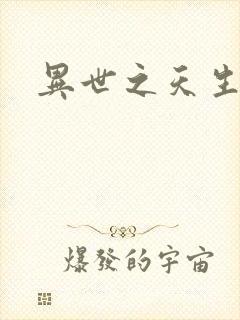 異世之天生
爆發的宇宙